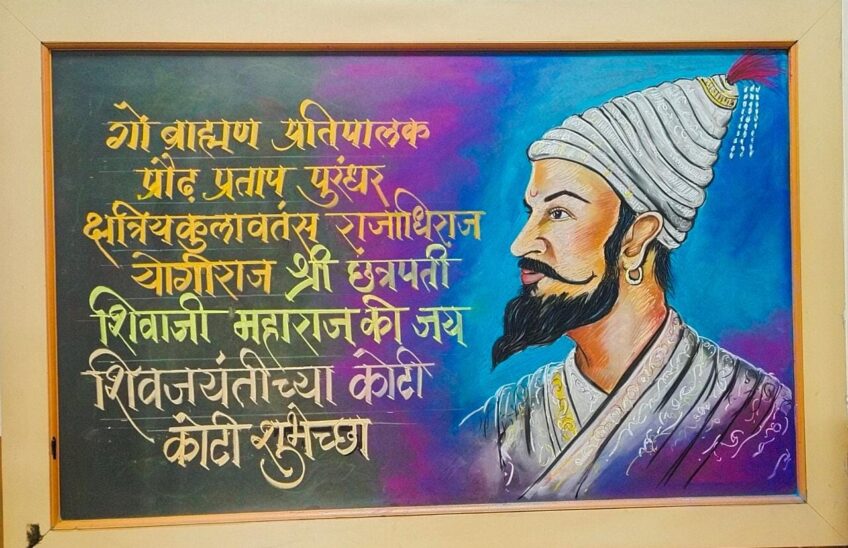 गो ब्राह्मण प्रतिपालक
प्रौढ़ प्रताप पुरंधर
क्षत्रियकुलावतंस राजाधिराज
योगीराज श्री छत्रपती
शिवाजी महाराज की जय
शिवजयंतीच्या कोटी
कोटी शुभेच्छा